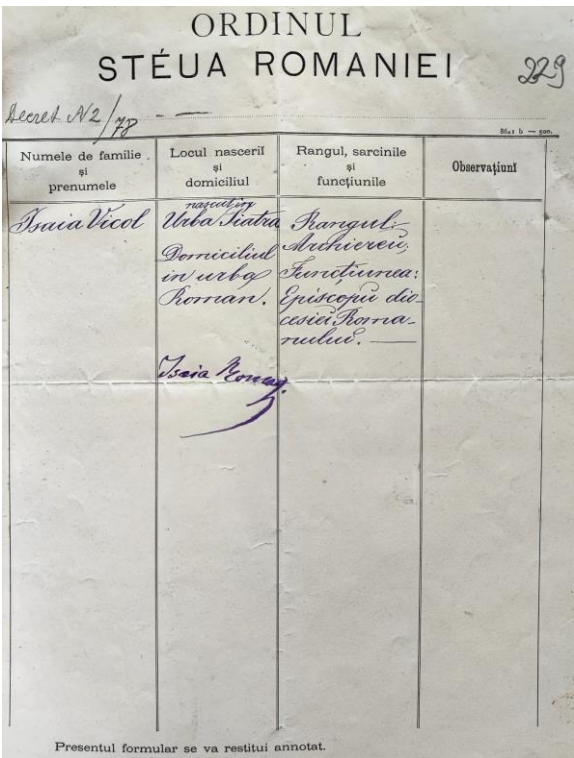 ORDINUL
STÉUA ROMANIEI
229
Decret N2/78 - —
Numele de familie
și
prenumele
Locul nasceriĭ
și
domiciliul
Rangul, sarcinile
și
funcțiunile
Observațiunĭ
Isaia Vicol
nascut in
Urba Piatra
Domiciliul
in urba
Roman.
Isaia Roman.
Rangul:
Archiereu;
Funcțiunea:
Episcopu dio-
cesieĭ Roma-
nuluĭ. —
Presentul formular se va restitui annotat.